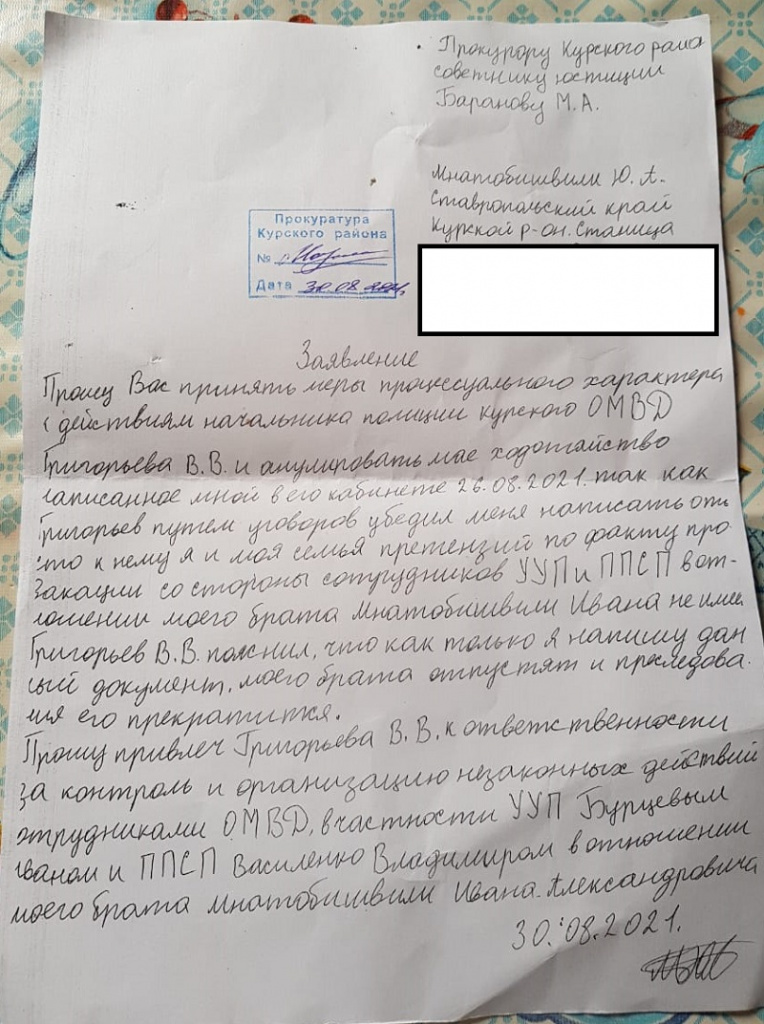 Прокурору Курского райо
советнику юстиции
Баранову М.А.
Мнатобишвили Ю.А.
Ставропольский край
Курской р-он. Станица
Прокуратура
Курского района
№
Дата 30.08.2021
Заявление
Прошу Вас принять меры процессуального характера
к действиям начальника полиции курского ОМВД
Григорьева В.В. и анулировать мае ходотайство
написанное мной в его кабинете 26.08.2021. так как
Григорьев путем уговоров убедил меня написать о
что к нему я и моя семья претензий по факту про-
вакации со стороны сотрудников УУП и ППСП в от-
ношении моего брата Мнатобишвили Ивана не име
Григорьев В.В. пояснил, что как только я напишу дан
ный документ, моего брата отпустят и преследова
ния его прекратится.
Прошу привлеч Григорьева В.В. к ответственности
за контроль и организацию незаконных действий
отрудниками ОМВД, в частности УУП Бурцевым
Иваном и ППСП Василенко Владимиром в отношении
моего брата Мнатобишвили Ивана Александровича
30.08.2021.